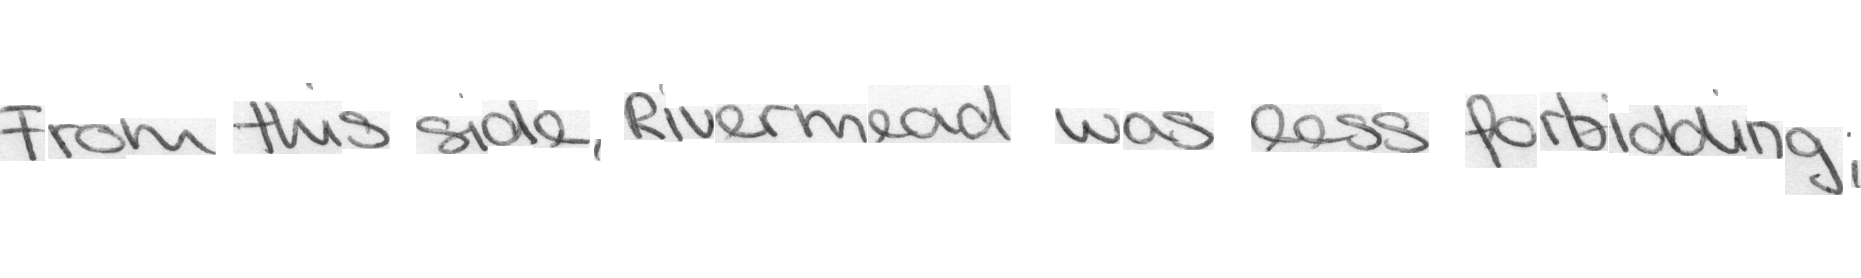 From this side, Rivermead was less forbidding;